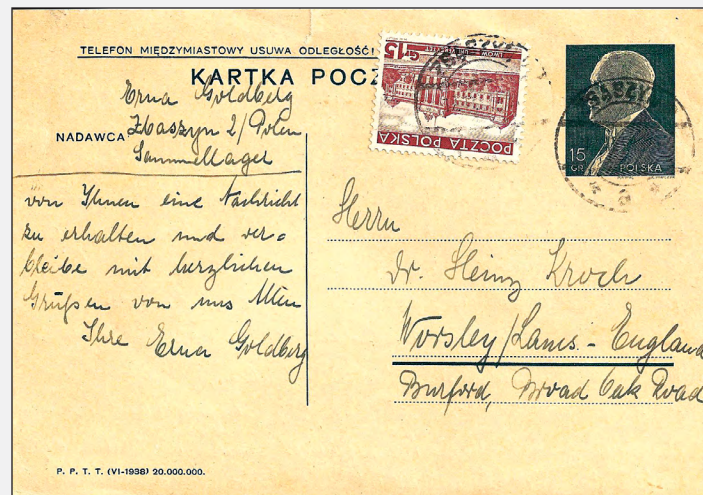 TELEFON MIĘDZYMIASTOWY USUWA ODLEGŁOŚĆ!
KARTKA POCZ
NADAWCA
Erna Goldberg
Zbaszyn 2/Polen
Sammellager
von Ihnen eine Nachricht
zu erhalten und ver-
bleibe mit herzlichen
Grüßen von uns Allen
Ihre Erna Goldberg
15 GR
LWÓW
POCZTA POLSKA
15
GR
POLSKA
Herrn
Dr. Heinz Kroch
Worsley/Lancs. - England
Burford, Broad Oak Road
P. P. T. T. (VI-1938) 20.000.000.